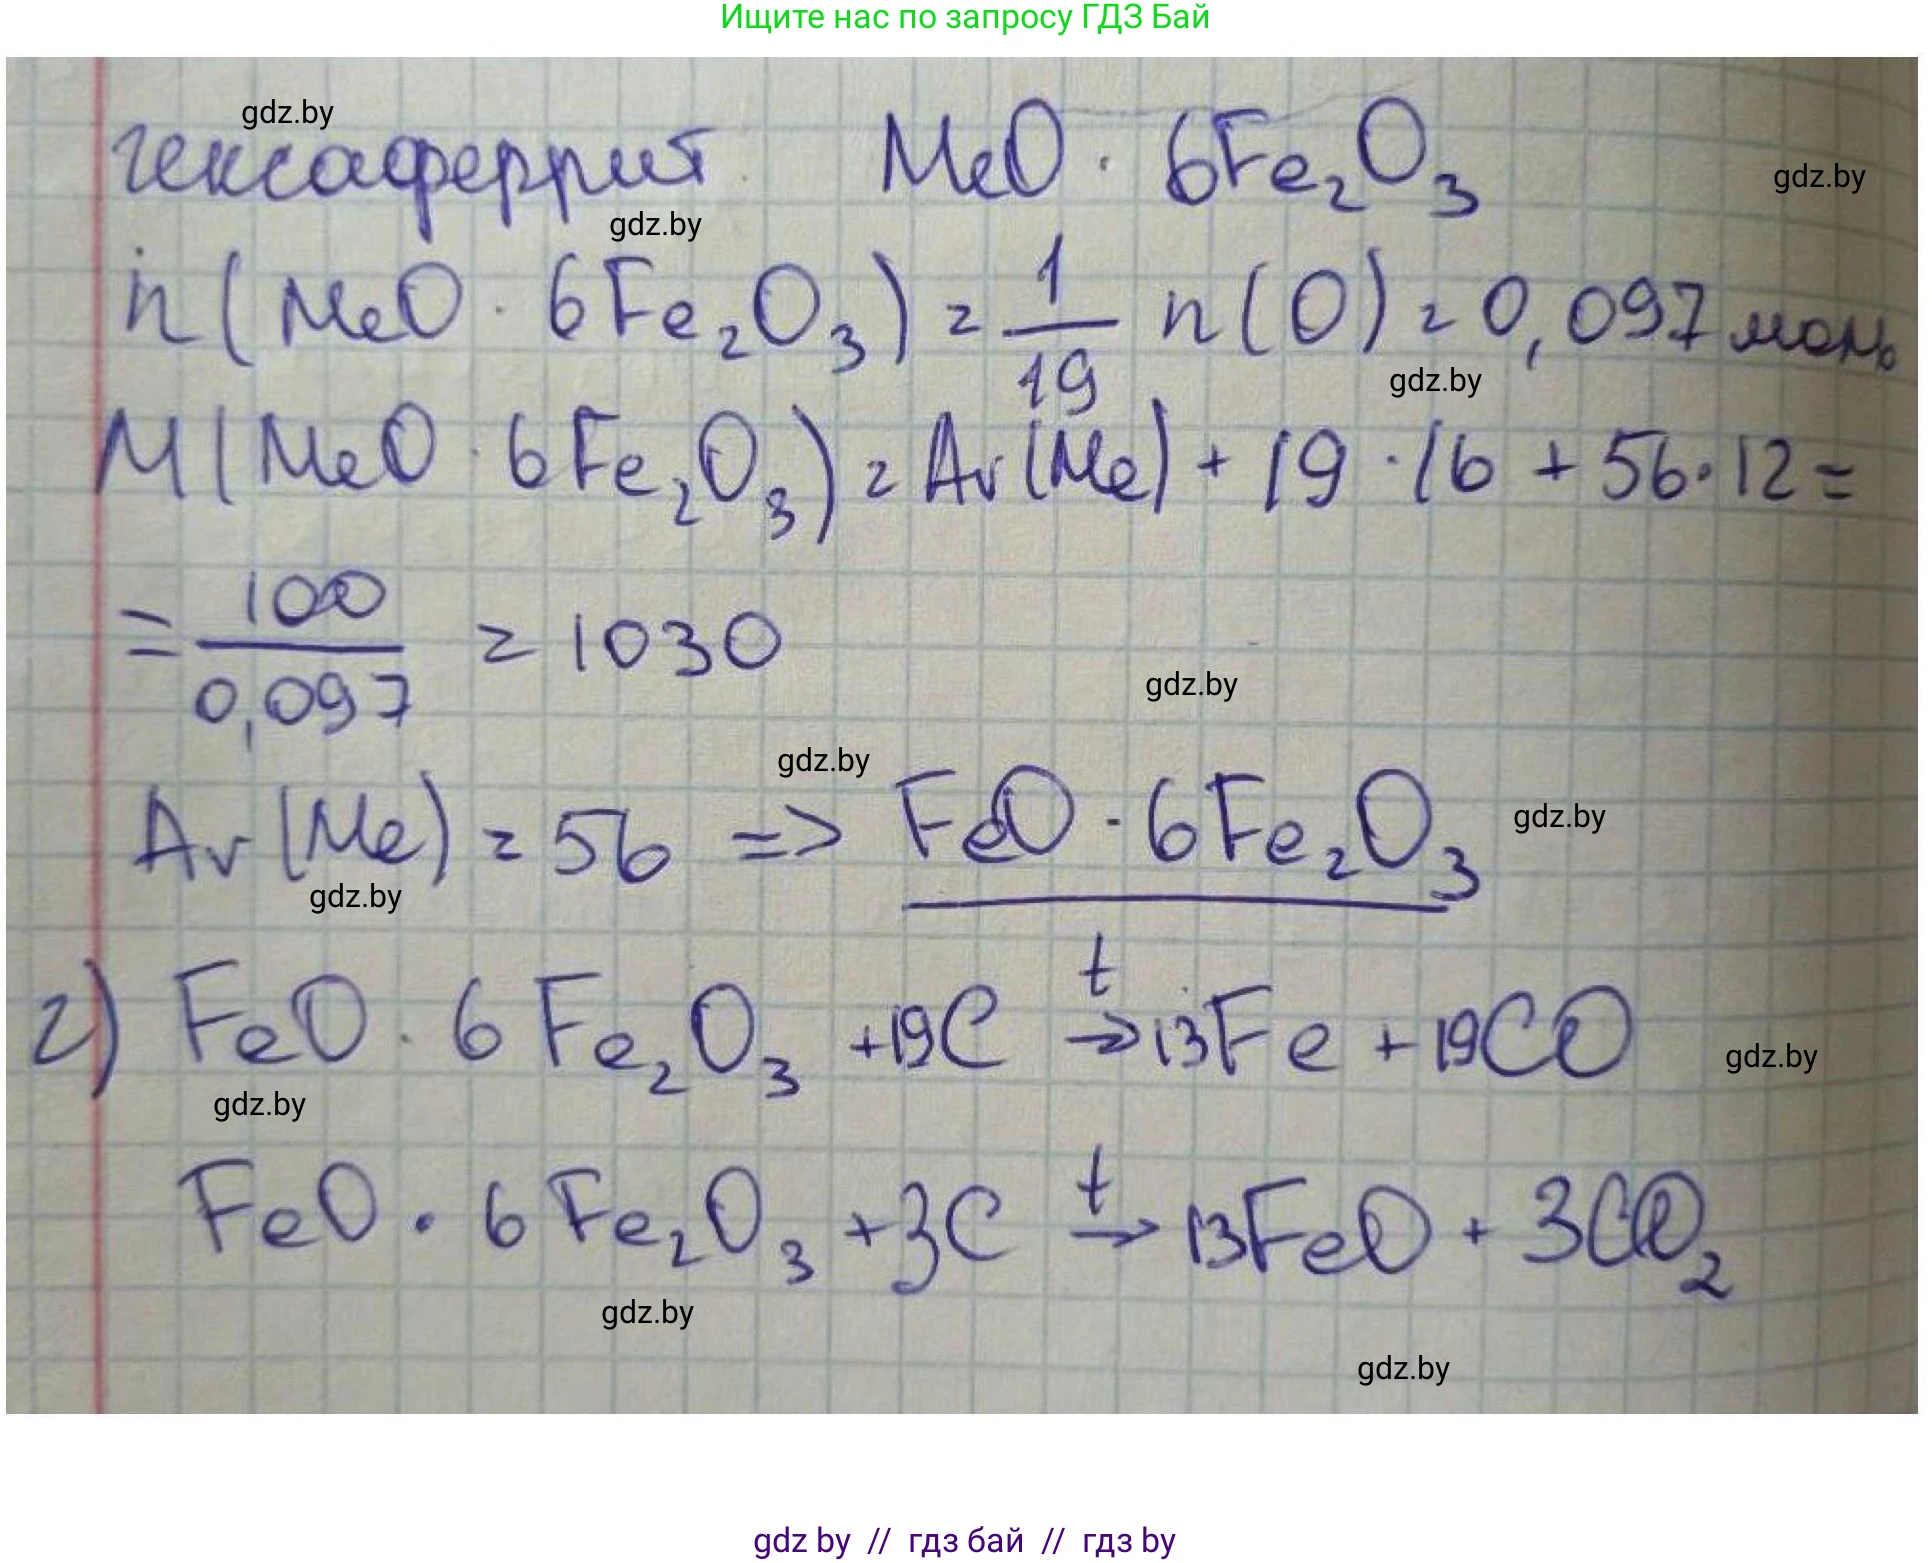 Ищите нас по запросу ГДЗ Бай
gdz.by
гексаферрит MeO · 6Fe₂O₃
gdz.by
gdz.by
n(MeO · 6Fe₂O₃) = 1/19 n(O) = 0,097 моль
gdz.by
M(MeO · 6Fe₂O₃) = Ar(Me) + 19 · 16 + 56 · 12 =
= 100/0,097 = 1030
gdz.by
gdz.by
Ar(Me) = 56 => FeO · 6Fe₂O₃
gdz.by
gdz.by
г) FeO · 6Fe₂O₃ + 19C t→ 13Fe + 19CO
gdz.by
gdz.by
FeO · 6Fe₂O₃ + 3C t→ 13FeO + 3CO₂
gdz.by
gdz.by
gdz by // гдз бай // гдз by